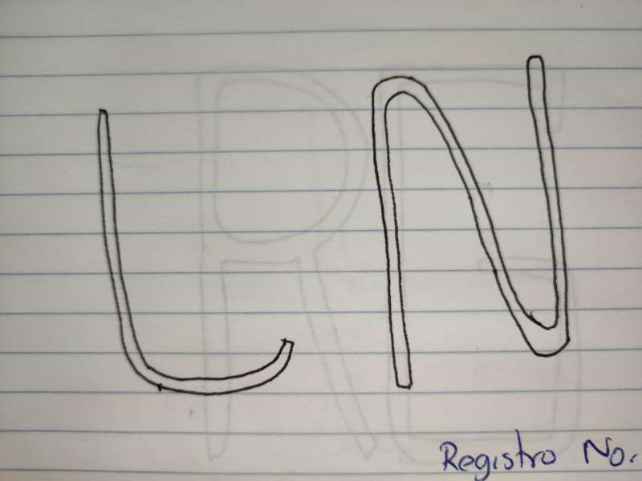 LN
Registro No.